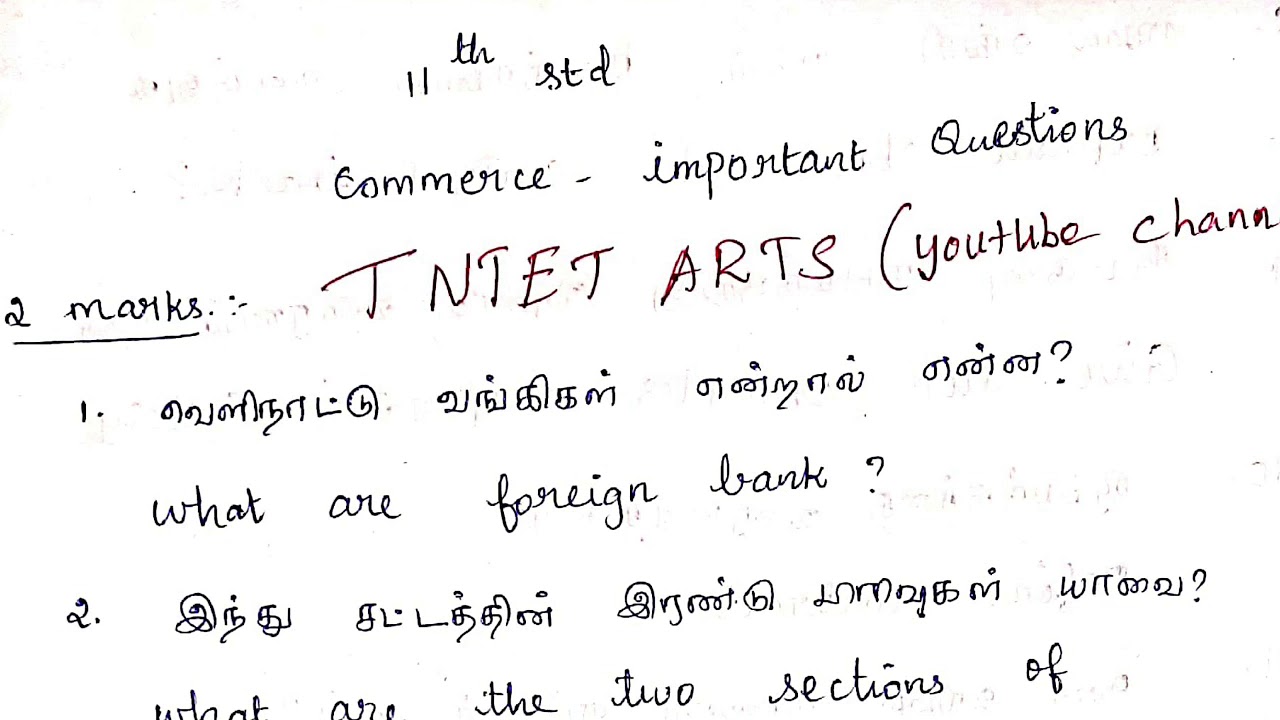 11th std
Commerce - important Questions
TNTET ARTS (youtube chann
2 marks :-
1. வெளிநாட்டு வங்கிகள் என்றால் என்ன?
what are foreign bank ?
2. இந்து சட்டத்தின் இரண்டு பாறவுகள் யாவை?
what are the two sections of